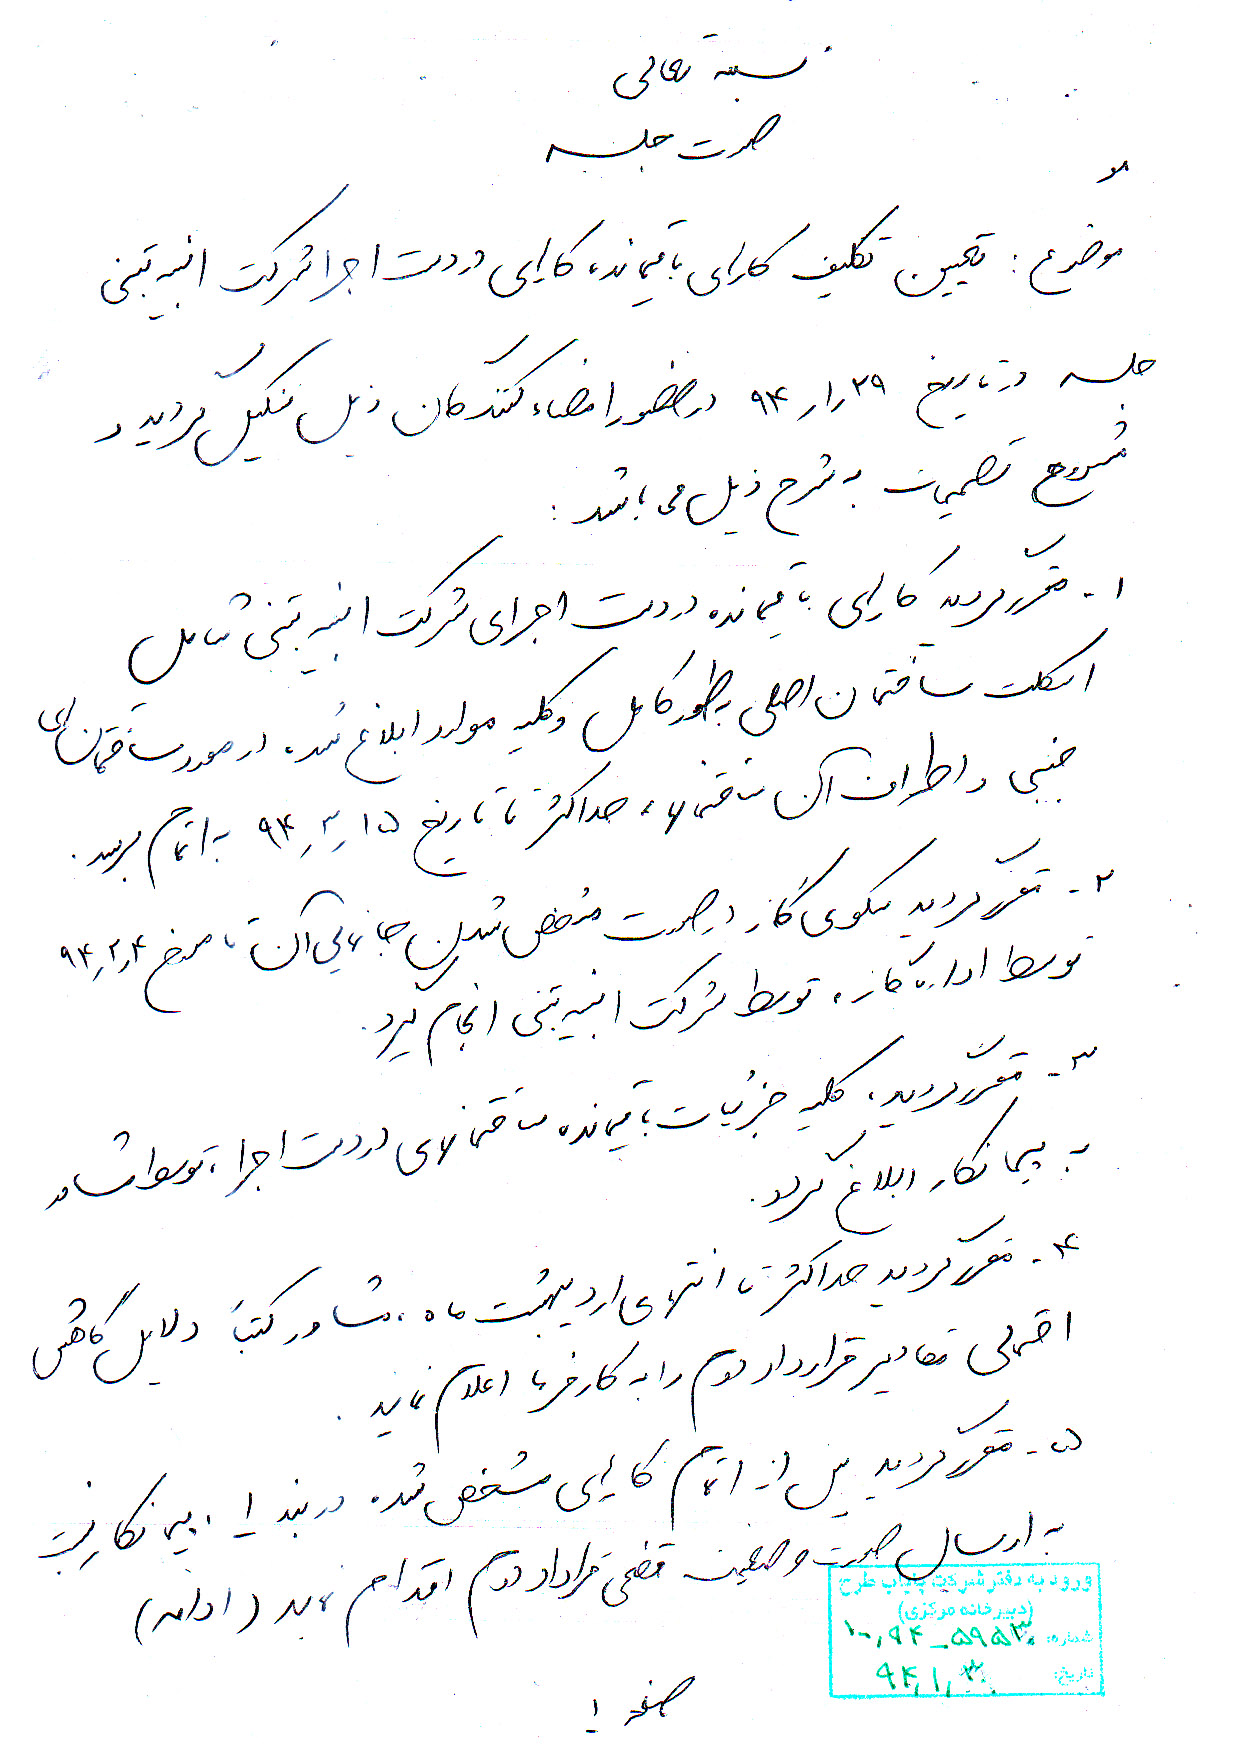 بسمه تعالی
صورت جلسه
موضوع : تعیین تکلیف کارهای باقیمانده کارهای در دست اجرا شرکت ابنیه تبنی
جلسه در تاریخ ۹۴/۱/۲۹ در حضور امضاء کنندگان ذیل تشکیل گردید و
مشروح تصمیمات به شرح ذیل می باشد :
۱- مقرر گردید کارهای باقیمانده در دست اجرای شرکت ابنیه تبنی شامل
اسکلت ساختمان اصلی بطور کامل و کلیه موارد ابلاغ شده در مورد ساختمان های
جنبی و اطراف آن ساختمانها، حداکثر تا تاریخ ۹۴/۲/۱۵ به اتمام برسد.
۲- مقرر گردید سکوی گاز در صورت مشخص شدن جانمایی آن تا مورخ ۹۴/۲/۴
توسط اداره گاز، توسط شرکت ابنیه تبنی انجام گیرد.
۳- مقرر گردید، کلیه جزئیات باقیمانده ساختمانهای در دست اجرا، توسط مشاور
به پیمانکار ابلاغ گردد.
۴- مقرر گردید حداکثر تا انتهای اردیبهشت ماه، مشاور کتباً دلایل کاهش
احتمالی مقادیر قرارداد دوم را به کارفرما اعلام نماید.
۵- مقرر گردید پس از اتمام کارهای مشخص شده در بند ۱، پیمانکار نسبت
به ارسال صورت وضعیت قطعی قرارداد دوم اقدام نماید (ادامه)
ورود به دفتر شرکت پنیاب طرح
(دبیرخانه مرکزی)
شماره: ۱۰۰٫۹۴-۵۹۵۳
تاریخ: ۹۴٫۱٫۳۰
صفحه ۱